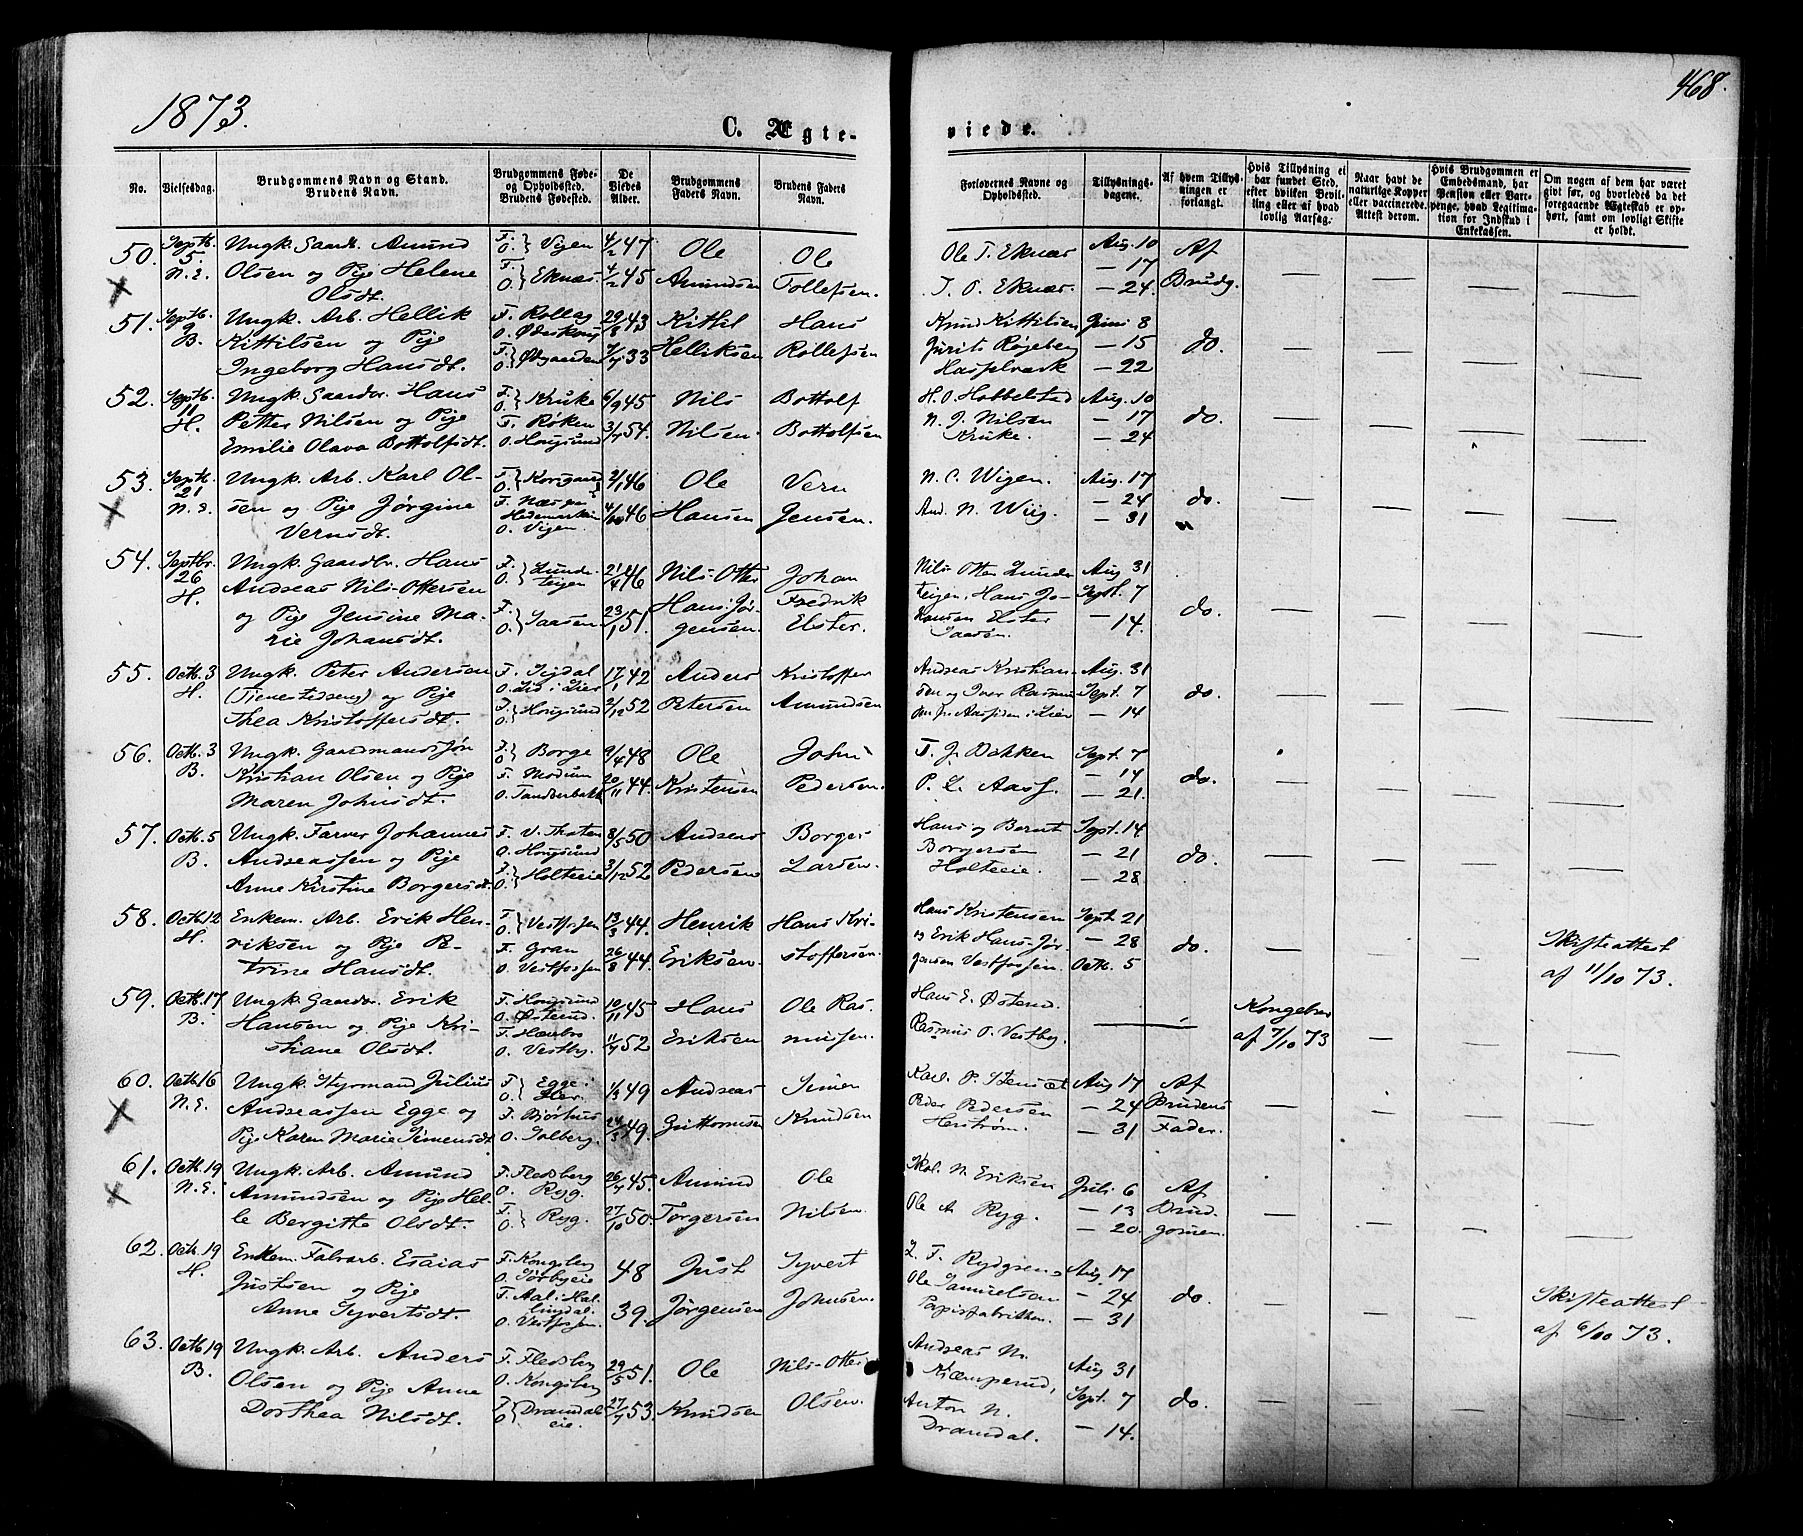 1873.
468.
C. Ægte-
viede.
No.
Vielsesdag.
Brudgommens Navn og Stand.
Brudens Navn.
Brudgommens Føde-
og Opholdssted.
Brudens Fødested.
De
Viedes
Alder.
Brudgommens
Faders Navn.
Brudens Faders
Navn.
Forlovernes Navne og
Opholdssted.
Tillysnings-
dagene.
Af hvem Tillys-
ningen er
forlangt.
Hvis Tillysning ei
har fundet Sted,
efter hvilken Bevil-
ling eller af hvad
lovlig Aarsag.
Naar havt de
naturlige Kopper
eller vaccinerede.
Attest derom.
Hvis Brudgommen er
Embedsmand, har
Pension eller Vart-
penge, hvad Legitima-
tion for Indskud i
Enkekassen.
Om nogen af dem har været
gift før, og hvorledes da det
foregaaende Ægteskab er op-
hørt, samt om lovligt Skifte
er holdt.
50. Septb. 5. N.E. Ungk. Gaardb. Amund F. O. Vigen 4/2 47 Ole Ole Ole T. Eknæs Aug. 10 Af
Olsen og Pige Helene F. O. Eknæs 4/2 45 Amundsen Tollefsen. — 17
Olsdt. T. O. Eknæs. — 24. Brudg.
51. Septb. 9 B. Ungk. Arb. Hellik F. Rollag 29/8 43 Kittil Hans Knud Kittilsen Juni 8
Kittilsen og Pige O. Ødeskoug Helliksen Rollefsen Røgeberg — 15 do.
Ingeborg Hansdt. F. O. Ødegaarden 7/7 33 Hasselværk — 22
52. Septb. 11 H. Ungk. Gaardbr. Hans F. O. Kruke 6/9 45 Nils Bottolf H. O. Hobbelstad Aug. 10
Petter Nilsen og Pige F. Røken 3/7 54. Nilsen. Bottolfsen N. J. Nilsen — 17 do.
Emilie Olava Bottolfsdt. O. Hougsund Kruke. — 24
53. Septb. 21 N.E. Ungk. Arb. Karl Ol- F. O. Korsgaard 46 Ole Vern N. C. Wigen. Aug. 17
sen og Pige Jørgine F. Næs paa Hedemarken 46 Hansen Jensen. And. N. Wiig. — 24 do.
Vernsdt. O. Vigen. — 31
54. Septbr. 26 H. Ungk. Gaardbr. Hans F. O. Lunde- 21/4 46 Nils-Otter Johan Nils Otter Lunde- Aug 31
Andreas Nils-Ottersen teigen Hans-Jør- Fredrik teigen, Hans Jo- Septb. 7
og Pige Jensine Ma- F. O. Saasen 23/1 51. gensen. Elster. hansen Elster — 14. do.
rie Johansdt. Saasen.
55. Octb. 3 H. Ungk. Peter Andersen F. Sigdal 17/1 42 Anders Kristoffer Andreas Kristian- Aug. 31
(Tjenestedreng) og Pige O. Lid i Lier sen og Iver Rasmus- Sept. 7 do.
Thea Kristoffersdt. F. O. Hougsund 2/12 52 Petersen Amundsen — 14
56. Octb. 3 B. Ungk. Gaardmandssøn F. O. Borge 9/4 48 Ole John T. J. Bakken Sept. 7
Kristian Olsen og Pige F. Modum 20/11 44. Kristensen Pedersen. P. L. Aass. — 14 do.
Maren Johnsdt. O. Tandberbakk — 21.
57. Octb. 5 B. Ungk. Farver Johannes F. V. Thoten 8/5 50 Andreas Borger Hans og Bernt Sept. 14
Andreassen og Pige O. Hougsund Pedersen Larsen. Borgersen — 21 do.
Anne Kirstine Borgersdt. F. O. Holteeie 3/12 52 Holteeie. — 28
58. Octb. 12 H. Enkem. Arb. Erik Hen- F. O. Vestfossen 13/3 44. Henrik Hans Kri- Hans Kristensen Sept. 21
riksen og Pige Pe- F. Gran 26/8 44. Eriksen. stoffersen. og Erik Hans-Jør- — 28 do. Skifteattest
trine Hansdt. O. Vestfossen gensen Vestfossen. Octb. 5 af 11/10 73.
59. Octb. 17 B. Ungk. Gaardbr. Erik F. Hougsund 10/11 45 Hans Ole Ras- Hans E. Østerud. Kongebrev
Hansen og Pige Kri- O. Østerud. Eriksen mussen. Rasmus O. Vestby. af 7/10 73
stiane Olsdt. F. O. Vestby. 11/7 52
60. Octb. 16 N.E. Ungk. Styrmand Julius F. O. Egge i Lier. 1/3 49 Andreas Simen Karl P. Stensæt Aug 17 Af
Andreassen Egge og F. Bjørhus 24/3 49. Guttormsen Knudsen Peder Pedersen — 24 Brudens
Pige Karen Marie Simensdt. O. Solberg. Herstrøm. — 31 Fader.
61. Octb. 19 N.E. Ungk. Arb. Amund F. Flesberg 26/7 45. Amund Ole N. Eriksen Juli 6 Af
Amundsen og Pige Hel- O. Ryg. Torgersen Nilsen. Ole A. Ryg. — 13 Brud-
le Bergitte Olsdt. F. O. Ryg. 27/10 50 — 20. gomen.
62. Octb. 19 H. Enkem. Fabrarb. Esaias F. Kongsberg 48 Just Syvert L. T. Rydgren Aug. 17
Justsen og Pige O. Sørbyeie Ole Samuelsen — 24 do. Skifteattest
Anne Syvertsdt. F. Aal i Hal- lingdal. O. Vestfossen. 39. Jørgensen Johnsen. Papirfabrikken. — 31 af 6/10 73.
63. Octb. 19 B. Ungk. Arb. Anders F. Flesberg 29/5 51. Ole Nils-Otter Andreas N. Aug 31
Olsen og Pige Anne O. Kongsberg Knudsen Olsen. Kjæmperud, Sept. 7 do.
Dorthea Nilsdt. F. O. Dramdal- eie. 27/7 53. Anton N. Dramdal. — 14.